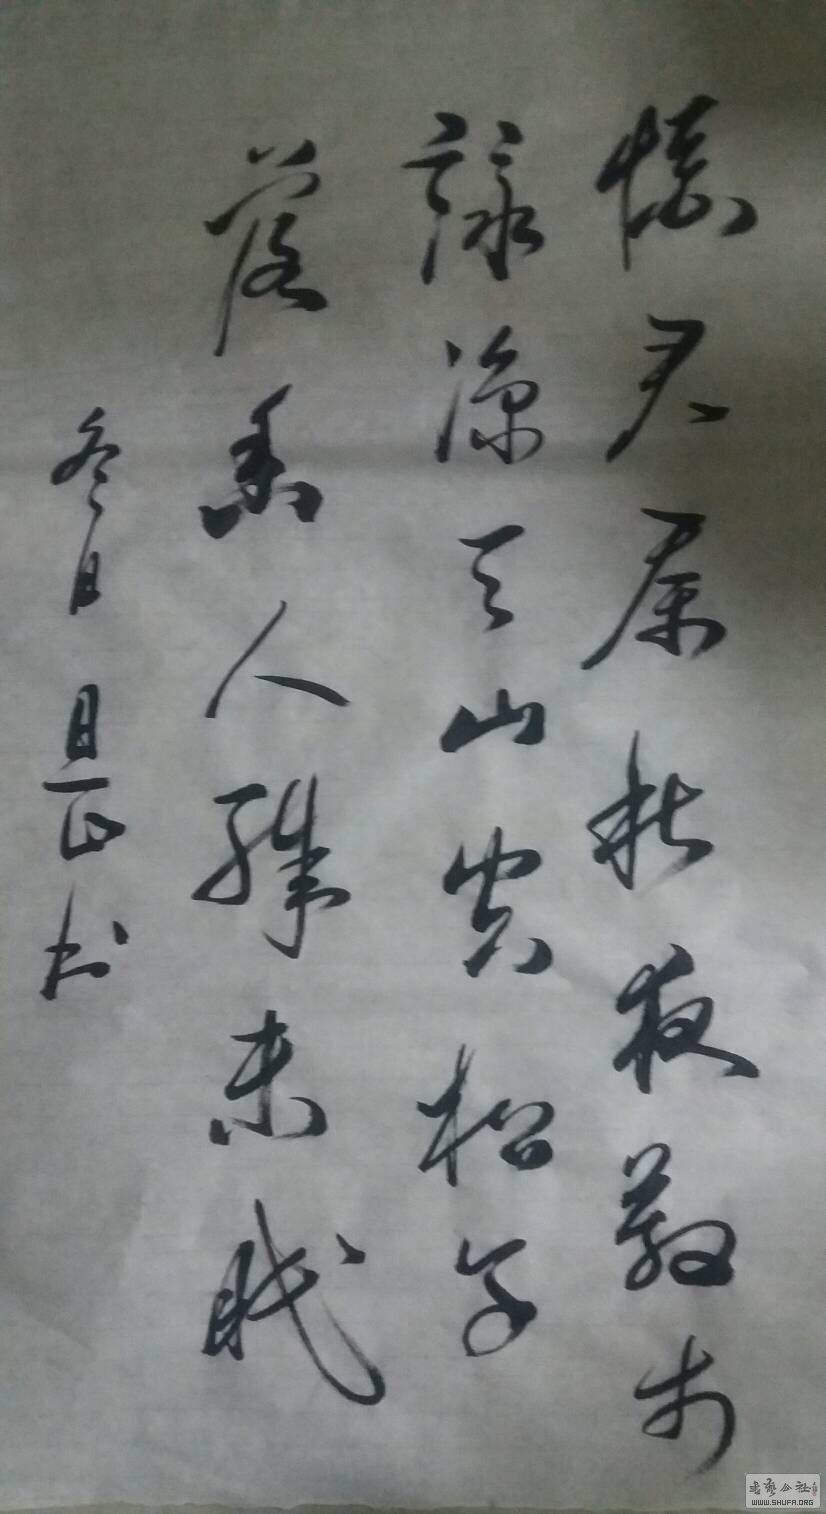 懷君属秋夜散步
詠涼天山空松子
落幽人殊未眠
冬日正书
书艺公社
WWW.SHUFA.ORG